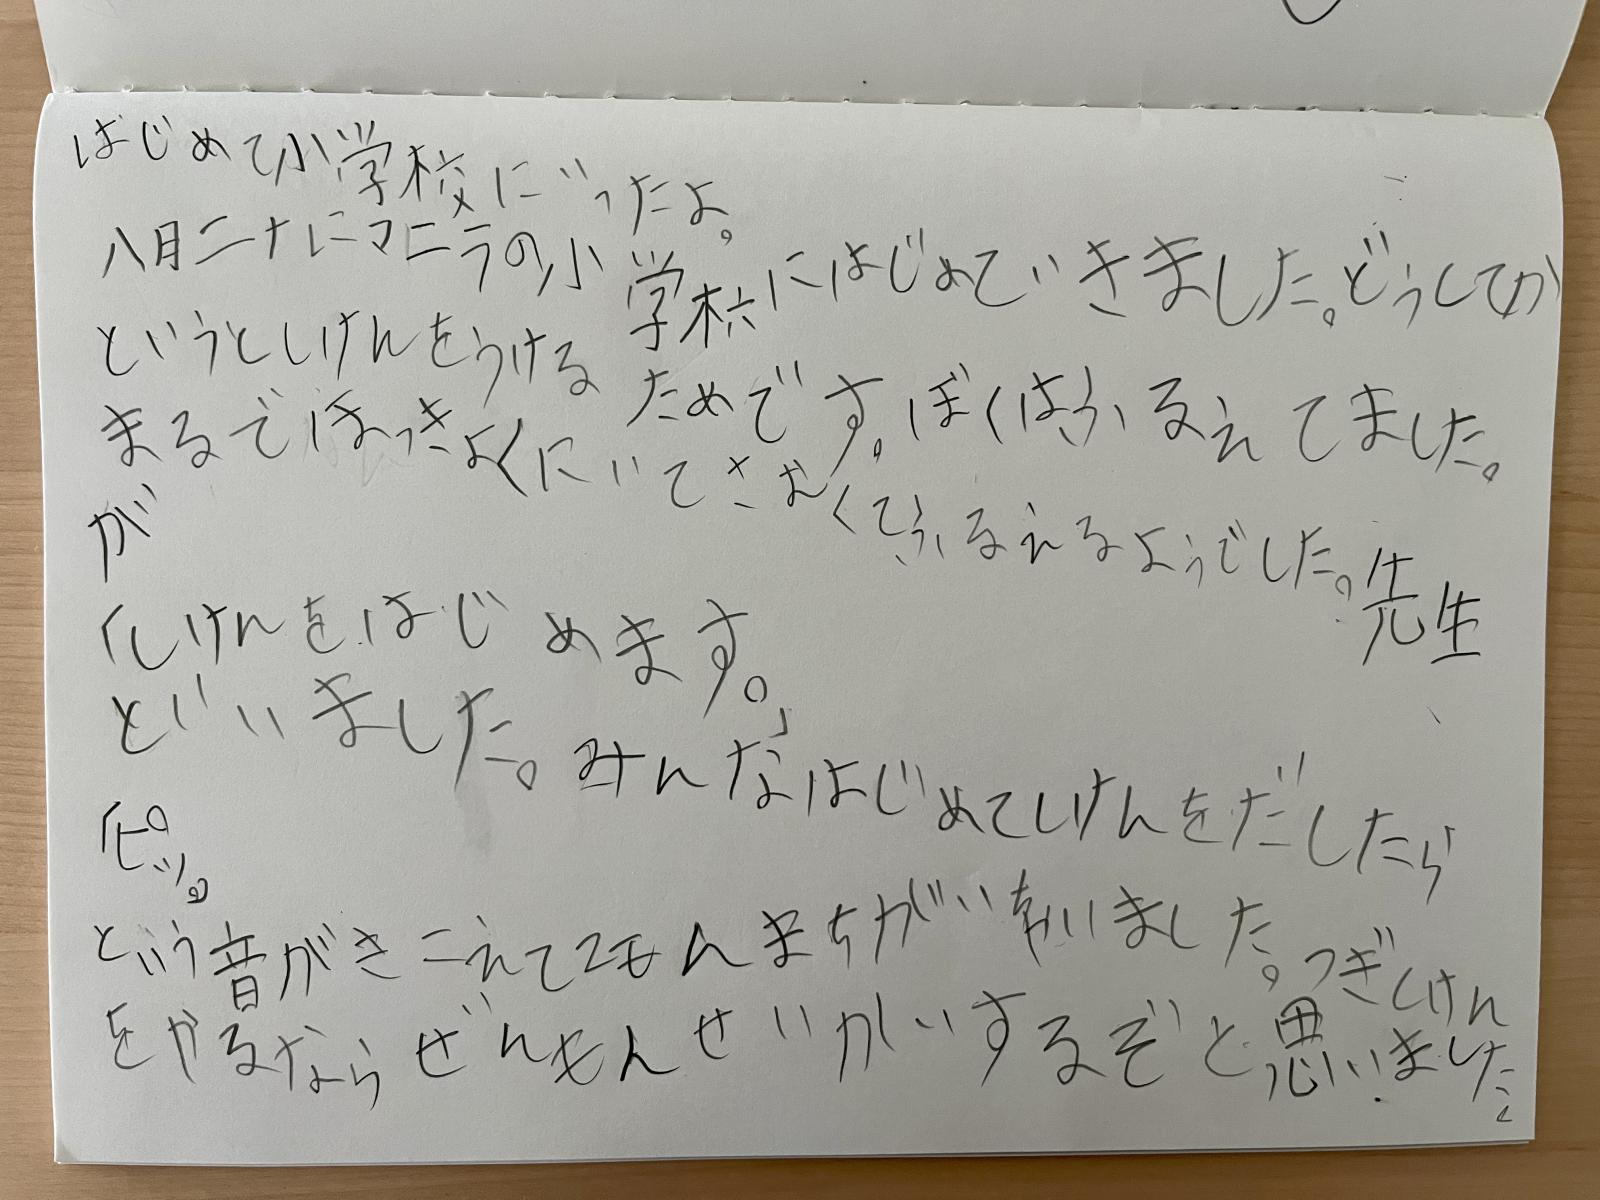 はじめて小学校にいったよ。
八月二十にマニラの小学校にはじめていきました。どうしてか
というとしけんをうけるためです。ぼくはふるえてました。
まるでほっきょくにいてさむくてふるえるようでした。先生
が
「しけんをはじめます。」
といいました。みんなはじめてしけんをだしたら
「ピッ。」
という音がきこえて2もんまちがいました。つぎしけん
をやるならぜんもんせいかいするぞと思いました。